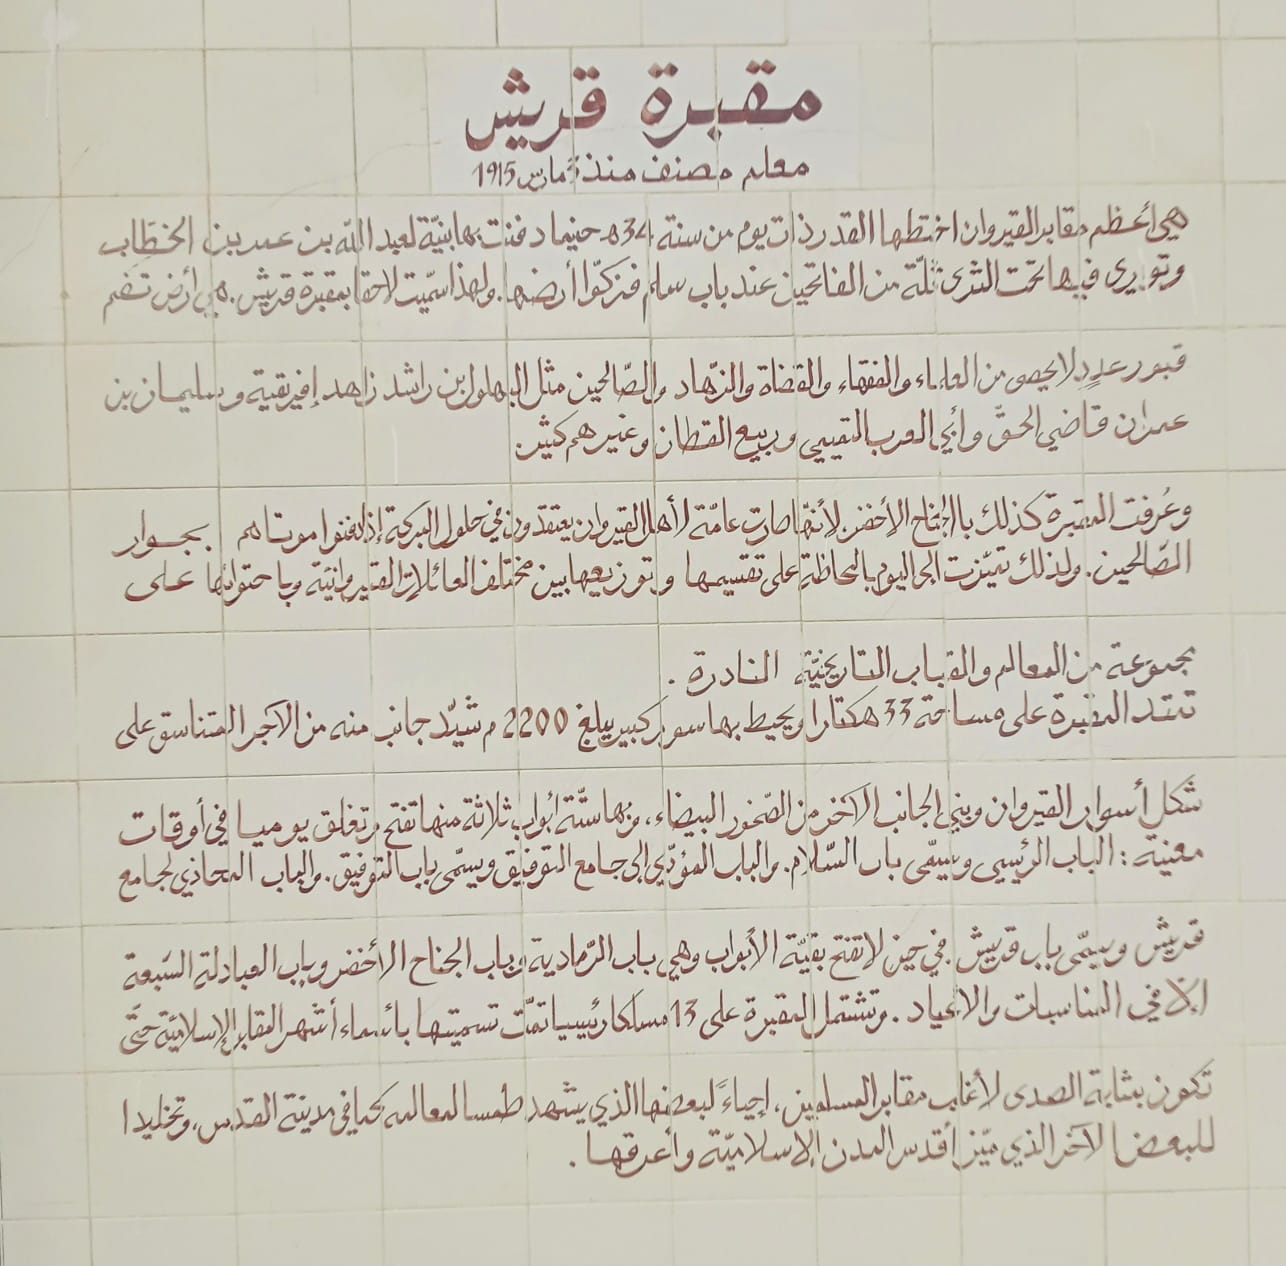 مقبرة قريش
معلم مصنف منذ مارس 1915
هي أعظم مقابر القيروان اختطها القدر ذات يوم من سنة 34هـ حينما دفنت بها بنيّة لعبد اللّه بن عمر بن الخطّاب
وتوورى فيها تحت الثرى ثلّة من الفاتحين عند باب سلم فزكّوا أرضها. ولهذا سمّيت لاحقا بمقبرة قريش. هي أرض تضم
قبور عددٍ لا يحصى من العلماء والفقهاء والقضاة والزّهاد والصّالحين مثل البهلول بن راشد زاهد إفريقية وسليمان بن
عمران قاضي الحقّ وأبي العرب التميمي وربيع القطان وغيرهم كثير.
وعُرفت المقبرة كذلك بالجناح الأخضر. لأنّها صارت عامّة لأهل القيروان يعتقدون في حلول البركة إذا دفنوا موتاهم بجوار
الصّالحين. ولذلك تميّزت إلى اليوم بالمحافظة على تقسيمها وتوزيعها بين مختلف العائلات القيروانيّة وباحتوائها على
مجموعة من المعالم والقباب التاريخيّة النادرة.
تمتد المقبرة على مساحة 33 هكتارا ويحيط بها سور كبير يبلغ 2200 م شيّد جانب منه من الآجر المتناسق على
شكل أسوار القيروان وبني الجانب الآخر من الصّخور البيضاء، وبها ستّة أبواب ثلاثة منها تفتح وتغلق يوميا في أوقات
معنية: الباب الرئيسي ويسمّى باب السّلام. والباب المؤدّي إلى جامع التوفيق ويسمّى باب التوفيق. والباب المحاذي لجامع
قريش ويسمّى باب قريش في حين لا تفتح بقيّة الأبواب وهي باب الرّمادية وباب الجناح الأخضر وباب العبادلة السّبعة
إلّا في المناسبات والأعياد. وتشتمل المقبرة على 13 مسلكا رئيسيا تمّت تسميتها بأسماء أشهر المقابر الإسلاميّة حتّى
تكون بمثابة الصدى لأغلب مقابر المسلمين، إحياءً لبعضها الذي يشهد طمسا لمعالمه كما في مدينة القدس، وتخليدا
للبعض الآخر الذي ميّز أقدس المدن الإسلاميّة وأعرقها.